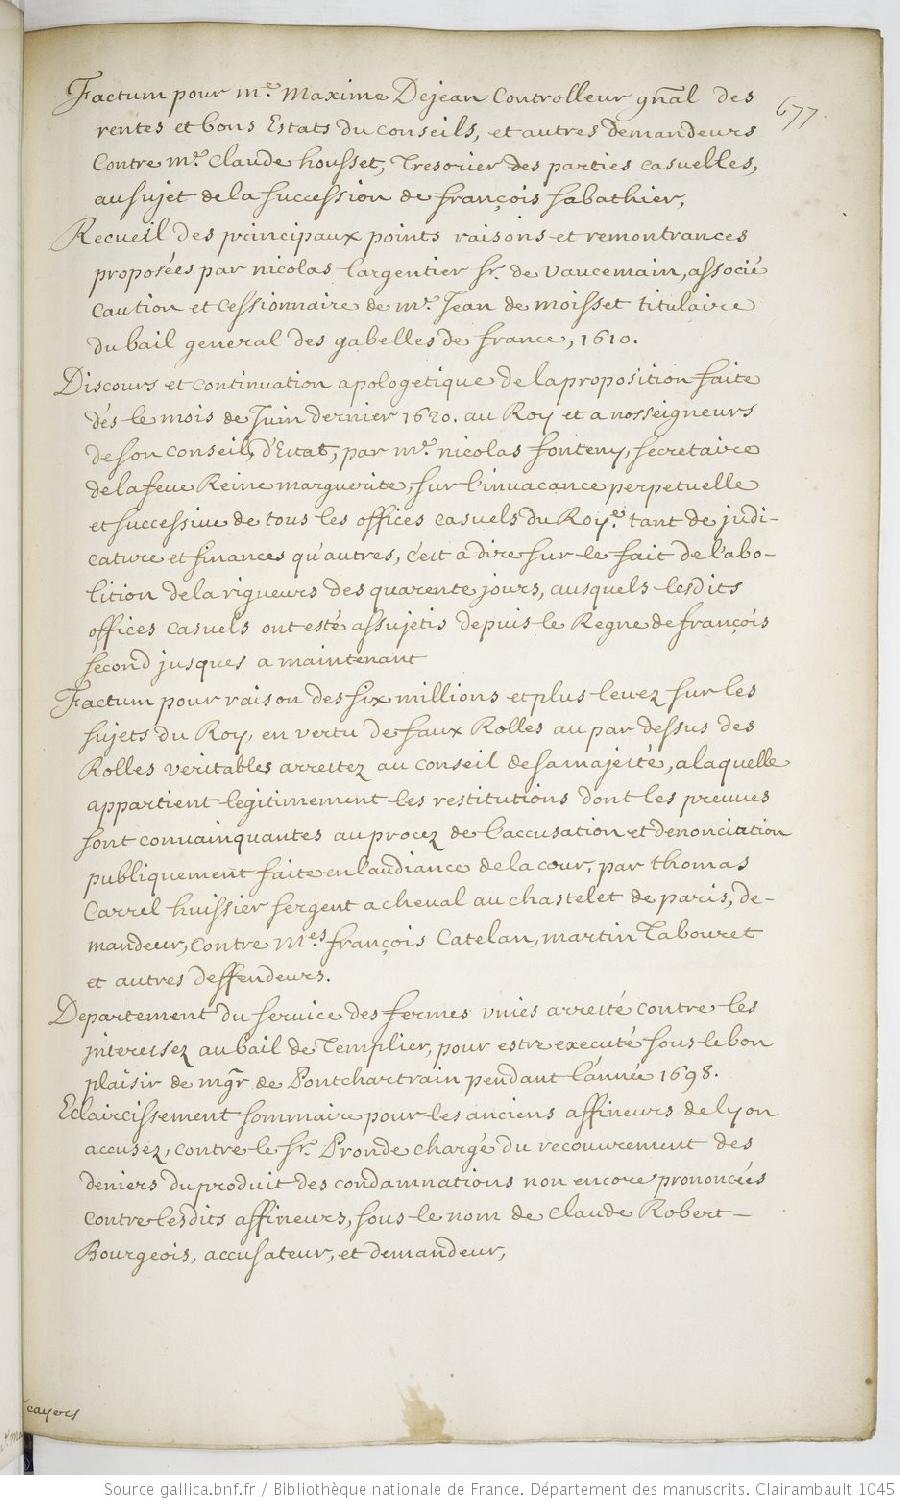 677.
Factum pour mr. Maxime Dejean Controlleur gñal des
rentes et bons Estats du conseils, et autres demandeurs
Contre mr. Claude housset, Tresorier des parties casuelles,
au sujet de la succession de françois sabathier,
Recueil des principaux points raisons et remontrances
proposées par nicolas Largentier sr. de vaucemain, associé
caution et cessionnaire de mr. Jean de moisset titulaire
du bail general des gabelles de france, 1610.
Discours et continuation apologetique de la proposition faite
dés le mois de Juin dernier 1620. au Roy et a nosseigneurs
de son conseil d'Estat, par mr. nicolas fonteny, secretaire
de la feue Reine marguerite, sur l'invacance perpetuelle
et successive de tous les offices casuels du Roye. tant de judi-
cature et finances qu'autres, c'est a dire sur le fait de l'abo-
lition de la rigueurs des quarente jours, ausquels lesdits
offices casuels ont esté assujetis depuis le Regne de françois
second jusques a maintenant
Factum pour raison des six millions et plus levez sur les
sujets du Roy, en vertu de faux Rolles au par dessus des
Rolles veritables arrestez au conseil de sa majesté, a laquelle
appartient legitimement les restitutions dont les preuves
sont convainquantes au procez de l'accusation et denonciation
publiquement faite en l'audiance de la cour, par thomas
Carrel huissier sergent a cheval au chastelet de paris, de-
mandeur, contre mes. françois Catelan, martin Tabouret
et autres deffendeurs.
Departement du service des fermes unies arresté contre les
interessez au bail de Templier, pour estre executé sous le bon
plaisir de mgr de Pontchartrain pendant l'année 1698.
Eclaircissement sommaire pour les anciens affineurs de lyon
accusez, contre le sr. Pronde chargé du recouvrement des
deniers du produit des condamnations non encore prononcées
contre lesdits affineurs, sous le nom de Claude Robert
Bourgeois, accusateur, et demandeur,
cayers
Source gallica.bnf.fr / Bibliothèque nationale de France. Département des manuscrits. Clairambault 1045